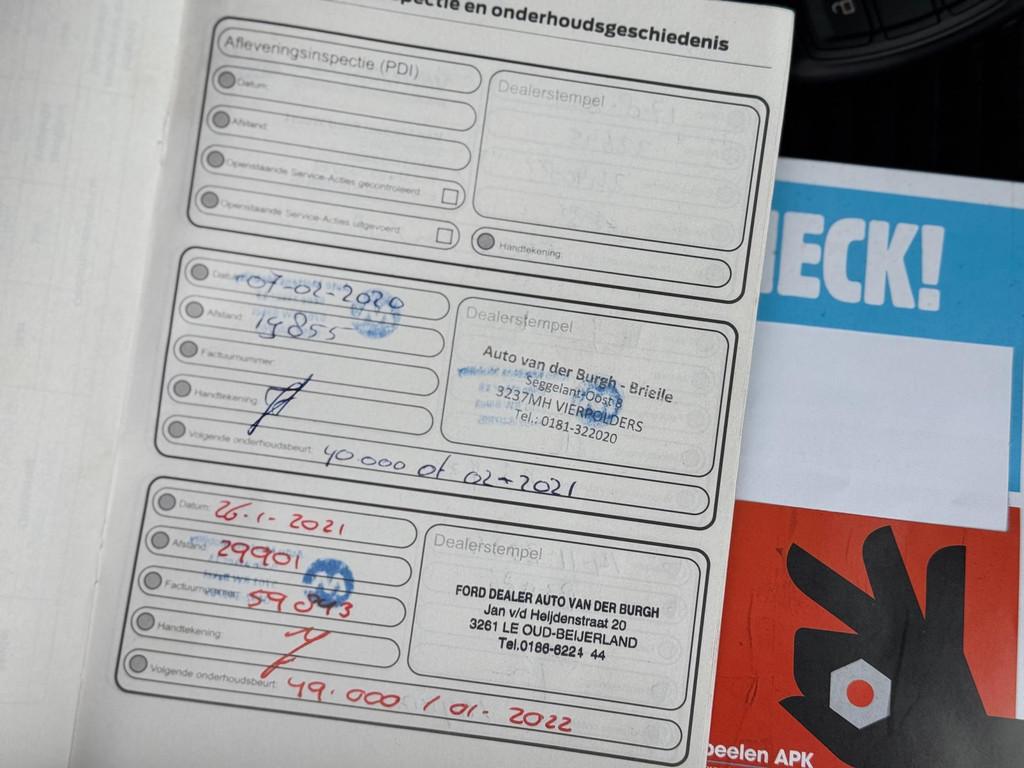 en onderhoudsgeschiedenis
Afleveringsinspectie (PDI)
Datum:
Afstand:
Openstaande Service-Acties gecontroleerd:
Openstaande Service-Acties uitgevoerd:
Dealerstempel
Handtekening:
Datum: 07-02-2020
Afstand: 19855
Factuurnummer:
Handtekening:
Volgende onderhoudsbeurt: 40 000 of 02-2021
Dealerstempel
Auto van der Burgh - Brielle
Seggelant-Oost 8
3237MH VIERPOLDERS
Tel.: 0181-322020
Datum: 26-1-2021
Afstand: 29901
Factuurnummer: 59843
Handtekening:
Volgende onderhoudsbeurt: 49.000 / 01-2022
Dealerstempel
FORD DEALER AUTO VAN DER BURGH
Jan v/d Heijdenstraat 20
3261 LE OUD-BEIJERLAND
Tel.0186-6224 44
ECK!
APK